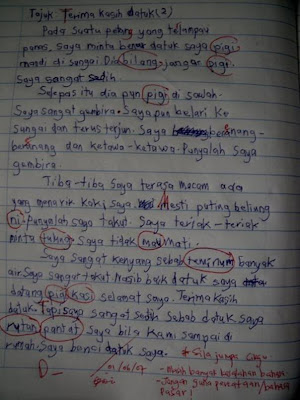 Tajuk Terima Kasih Datuk (2)
Pada suatu petang yang terlampau
panas, saya minta benar datuk saya pigi
mandi di sungai. Dia bilang, jangan pigi.
Saya sangat sedih.
Selepas itu dia pun pigi di sawah.
Saya sangat gumbira. Saya pun belari ke
sungai dan terus terjun. Saya benang-
benang dan ketawa-ketawa. Punyalah saya
gumbira.
Tiba-tiba saya terasa macam ada
yang menarik kaki saya. Mesti puting beliung
ni. Punyalah saya takut. Saya teriak-teriak
minta tulung. Saya tidak mau mati.
Saya sangat kenyang sebab terminum banyak
air. Saya sangat takut. Nasib baik datuk saya
datang pigi kasi selamat saya. Terima kasih
datuk. Tapi saya sangat sedih sebab datuk saya
rutan pantat saya bila kami sampai di
rumah. Saya benci datuk saya.
* Sila jumpa Cikgu
D-
01/06/07
- Masih banyak kesalahan bahasa
- Jangan guna percakapan/bahasa
pasar!